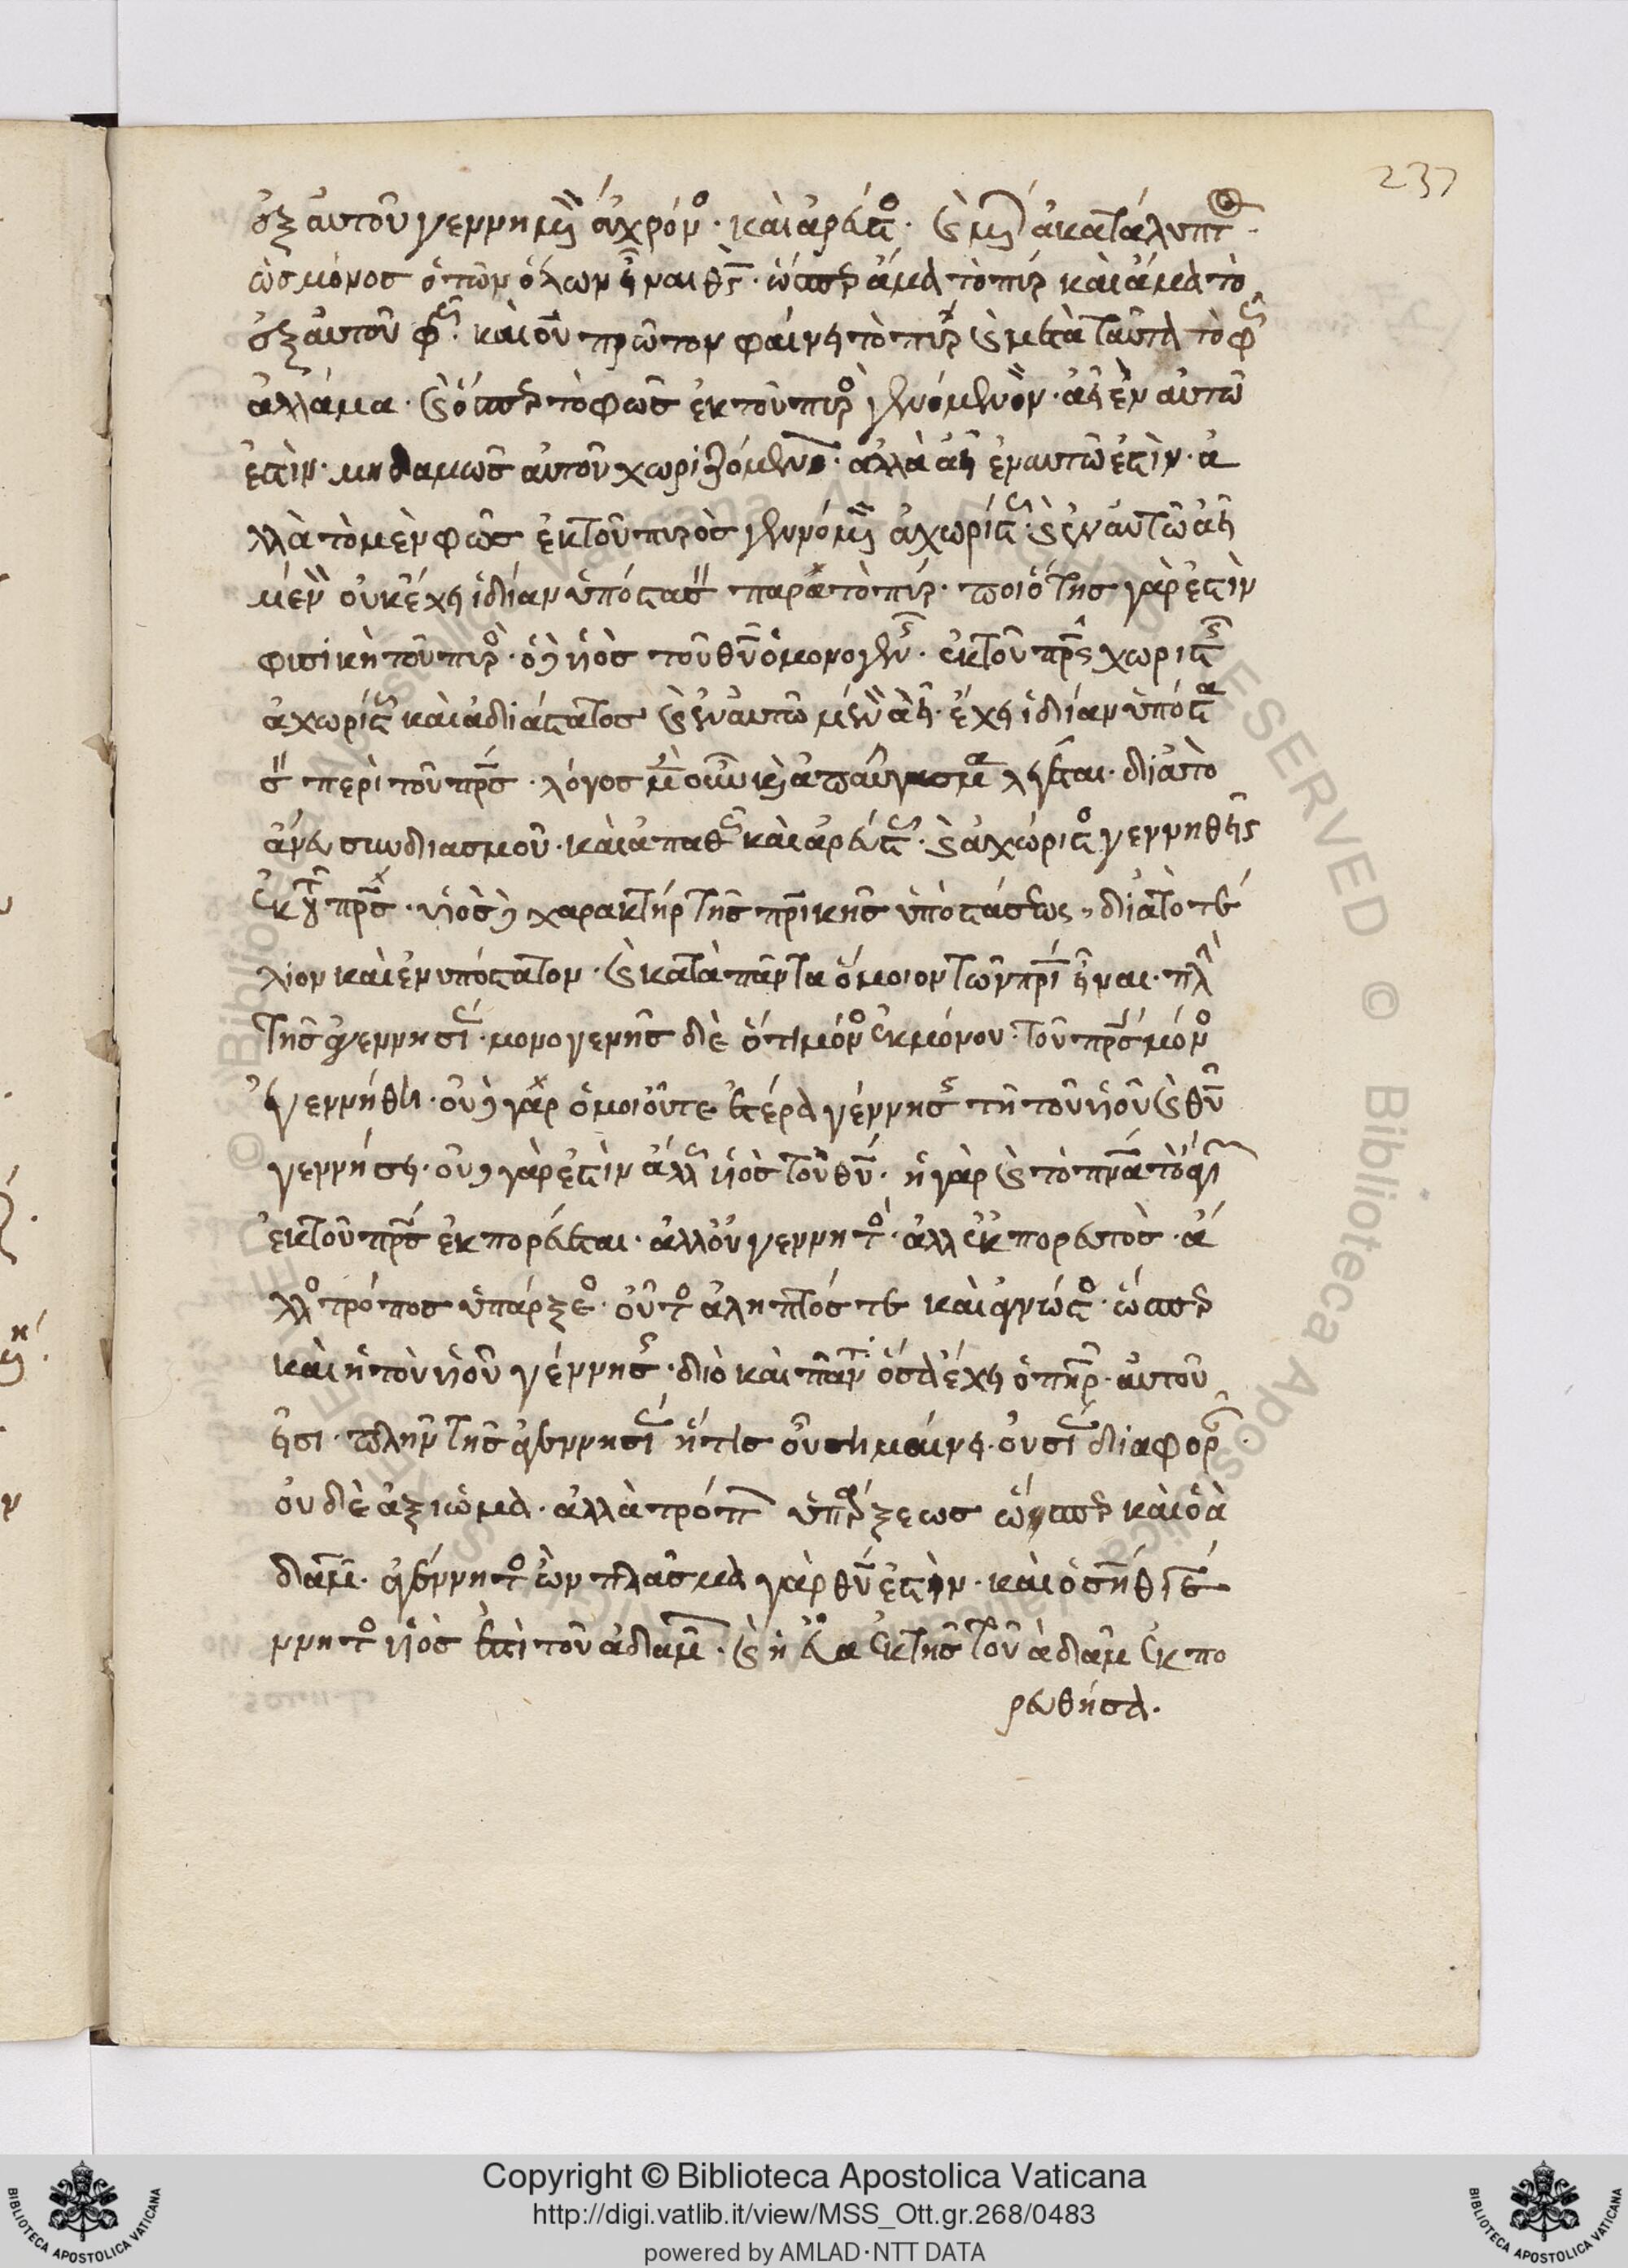 237
ἐξ αὐτοῦ γεννημ ἀχρόν · καὶ ἀρεύστ · καὶ μὴ ἀκαταλυπτ
ὡς μόνος ὁ τῶν ὅλων εἶναι θς · ὥσπερ ἅμα τὸ πῦρ καὶ ἅμα τὸ
ἐξ αὐτοῦ φῶς · καὶ οὐ πρῶτον φαίνη τὸ πῦρ καὶ μετὰ ταῦτα τὸ φῶς
ἀλλ' ἅμα · καὶ ὥσπερ τὸ φῶς ἐκ τοῦ πυρὸς γενόμενον · ἀεὶ ἐν αὐτῶ
ἐστὶν · μηδαμῶς αὐτοῦ χωριζόμενον · ἀλλὰ ἀεὶ ἐν αὐτῶ ἐστὶν · ἀ
λλὰ τὸ μὲν φῶς ἐκ τοῦ πυρὸς γεννόμ ἀχωρίστως · καὶ ἐν αὐτῶ ἀεὶ
μένον οὐκ ἔχη ἰδίαν ὑπόστασ παρὰ τὸ πῦρ · ποιότης γὰρ ἐστὶν
φισικὴ τοῦ πυρὸς · ὁ δὲ ὑιὸς τοῦ θυ ὁ μονογενὴς · ἐκ τοῦ πρς χωριστ
ἀχωρίστως καὶ ἀδιάστατος καὶ ἐν αὐτῶ μένων ἀεὶ · ἔχη ἰδίαν ὑπόστα
σ περὶ τοῦ πρς · λόγος μὲν οὖν καὶ ἀπαύγασμα λέγεται · διὰ τὸ
ἄνευ συνδιασμοῦ · καὶ ἀπαθῶς καὶ ἀρεύστως · καὶ ἀχώριστο γεννηθεῖς
ἐκ τοῦ πρς · υἱὸς δὲ χαρακτὴρ τῆς πρικῆς ὑποστάσεως, διὰ τὸ τέ
λιον καὶ ἐνυπόστατον · καὶ κατὰ πάντα ὅμοιον τῶν πρὶ εἶναι · πλὴ
τῆς ἀγεννησί · μονογενὴς δὲ ὅτι μόνο ἐκ μόνου τοῦ πρς μόνο
ἐγεννήθη · οὐδὲ γὰρ ὁμοιοῦτε ἑτέρα γέννησ τῆ τοῦ ὑιοῦ καὶ θυ
γεννήση · οὐδὲ γὰρ ἐστὶν ἄλλ υἱὸς τοῦ θυ · ἡ γὰρ καὶ τὸ πνα τὸ ἅγι
ἐκ τοῦ πρς ἐκπορεύεται · ἀλλ' οὐ γεννητο · ἀλλ' ἐκπορευτὸς · ἄ
λλο τρόπος ὑπάρξεο · οὗτο ἄληπτός τε καὶ ἄγνωστο · ὥσπερ
καὶ ἡ τοῦ ὑιοῦ γέννησ · διὸ καὶ πάντ ὅσα ἔχη ὁ πηρ · αὐτοῦ
εἰσι · πλὴν τῆς ἀγεννησί ἥτις οὐ σημαίνη · οὐσί διαφορ
οὐδὲ ἀξιώμα · ἀλλὰ τρόπ ὑπάρξεως ὥσπερ καὶ ὁ ἀ
δὰμ · ἀγέννητο ὢν πλάσμα γὰρ θυ ἐστιν · καὶ ὁ σὴθ γε
ννητο ὑιὸς ἐστὶ τοῦ ἀδὰμ · καὶ ἡ εὔα ἐκ τῆς τοῦ ἀδὰμ ἐκπο
ρευθῆσα ·
Copyright © Biblioteca Apostolica Vaticana
http://digi.vatlib.it/view/MSS_Ott.gr.268/0483
powered by AMLAD·NTT DATA
BIBLIOTECA APOSTOLICA VATICANA
BIBLIOTECA APOSTOLICA VATICANA